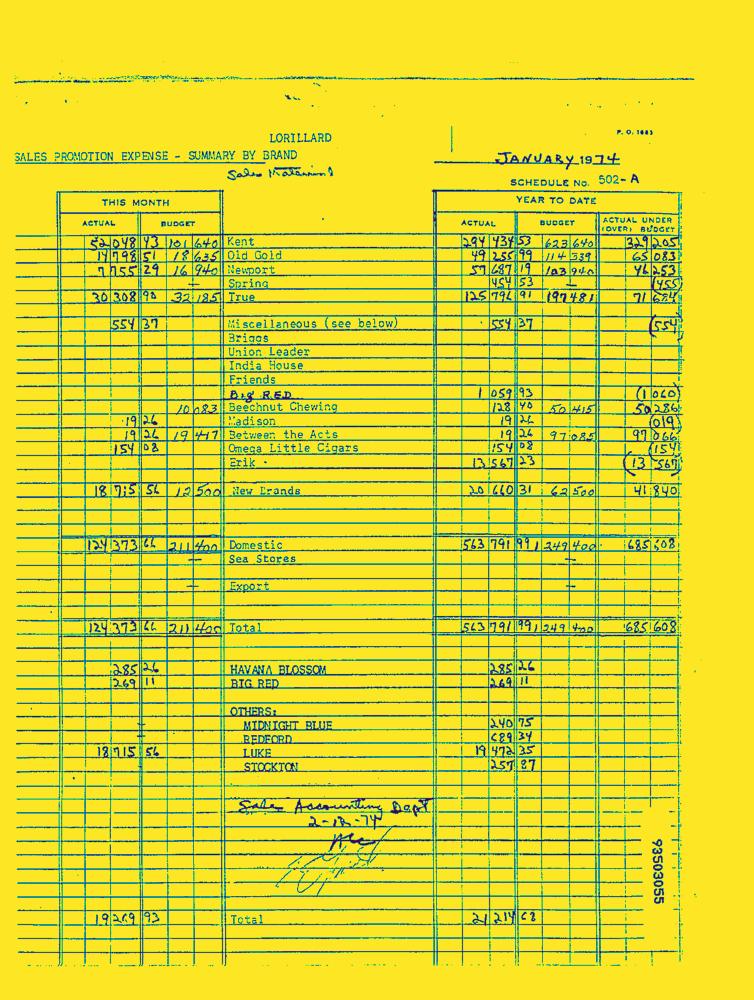 P. O. 1683
LORILLARD
SALES PROMOTION EXPENSE - SUMMARY BY BRAND JANUARY 1974
Sales Material
SCHEDULE No. 502-A
THIS MONTH YEAR TO DATE
ACTUAL BUDGET ACTUAL BUDGET ACTUAL UNDER (OVER) BUDGET
52 048 43 101 640 Kent 294 434 53 623 640 329 205
14 798 51 18 635 Old Gold 49 255 99 114 339 65 083
7 755 29 16 940 Newport 57 687 19 103 940 46 253
Spring 454 53 — (455)
30 308 90 32 185 True 125 796 91 197 481 71 684
554 37 Miscellaneous (see below) 554 37 (554)
Briggs
Union Leader
India House
Friends
Big RED 1 059 93 (1 060)
10 083 Beechnut Chewing 128 40 50 415 50 286
19 26 Madison 19 26 (019)
19 26 19 417 Between the Acts 19 26 97 085 97 066
154 08 Omega Little Cigars 154 08 (154)
Erik 13 567 23 (13 567)
18 715 56 12 500 New Brands 20 660 31 62 500 41 840
124 373 66 211 400 Domestic 563 791 99 1 249 400 685 608
— Sea Stores —
— Export —
124 373 66 211 400 Total 563 791 99 1 249 400 685 608
285 26 HAVANA BLOSSOM 285 26
269 11 BIG RED 269 11
OTHERS:
— MIDNIGHT BLUE 240 75
— REDFORD 689 34
18 715 56 LUKE 19 472 35
STOCKTON 257 87
Sales Accounting Dept
2-18-74
93503055
19 269 93 Total 21 214 68